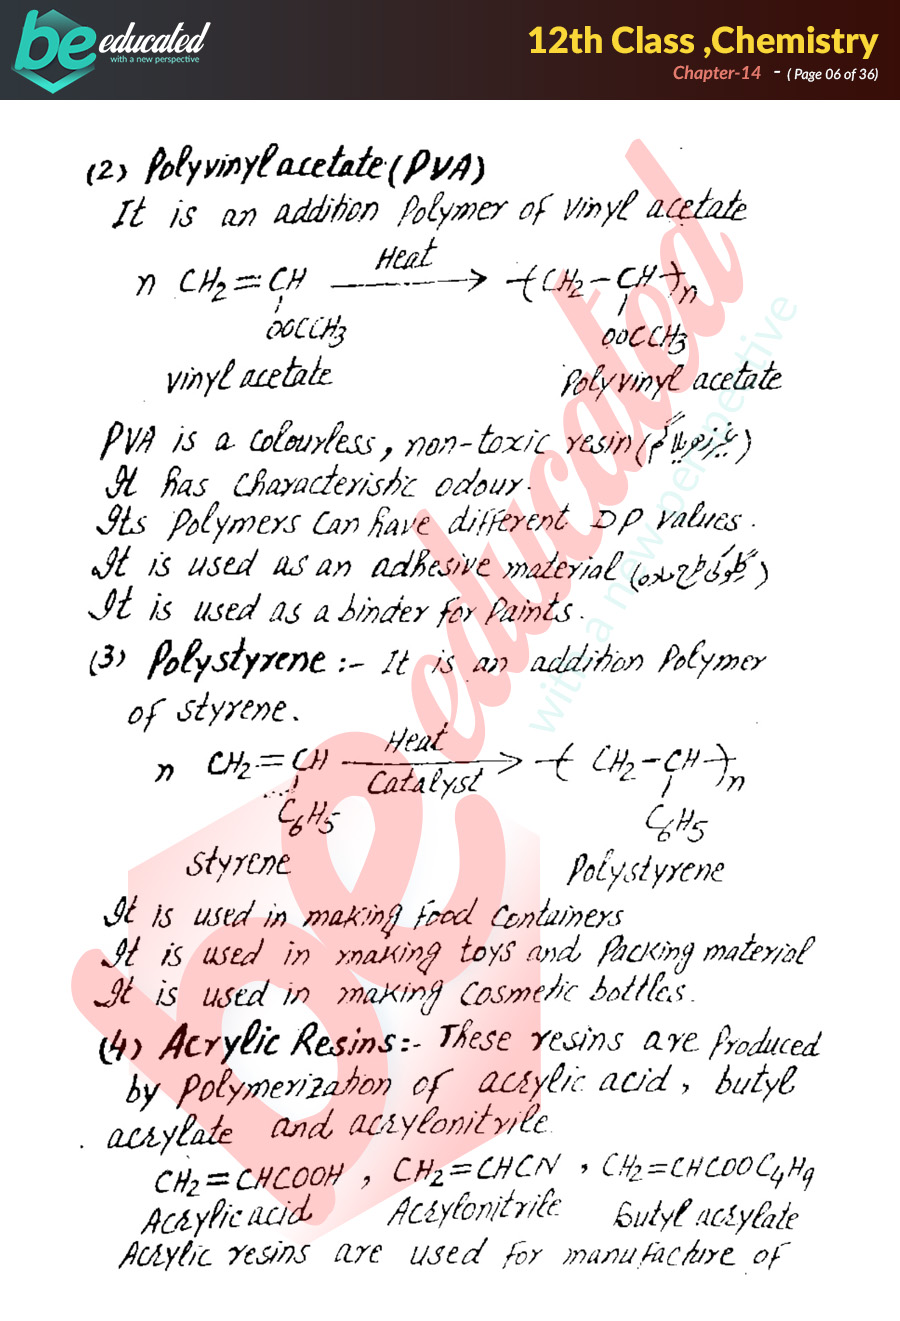 be educated
with a new perspective
12th Class ,Chemistry
Chapter-14 - ( Page 06 of 36)
(2) Polyvinyl acetate (PVA)
It is an addition Polymer of vinyl acetate
n CH2=CH Heat → -(CH2-CH)n
OOCCH3 OOCCH3
vinyl acetate Polyvinyl acetate
PVA is a colourless, non-toxic resin (
It has characteristic odour.
Its Polymers can have different DP values.
It is used as an adhesive material (
It is used as a binder for Paints.
(3) Polystyrene :- It is an addition Polymer
of styrene.
n CH2=CH Heat Catalyst → -( CH2-CH)n
C6H5 C6H5
Styrene Polystyrene
It is used in making food containers
It is used in making toys and Packing material
It is used in making cosmetic bottles.
(4) Acrylic Resins:- These resins are Produced
by Polymerization of acrylic acid, butyl
acrylate and acrylonitrile.
CH2=CHCOOH, CH2=CHCN, CH2=CHCOOC4H9
Acrylic acid Acrylonitrile Butyl acrylate
Acrylic resins are used for manufacture of
be educated
with a new perspective